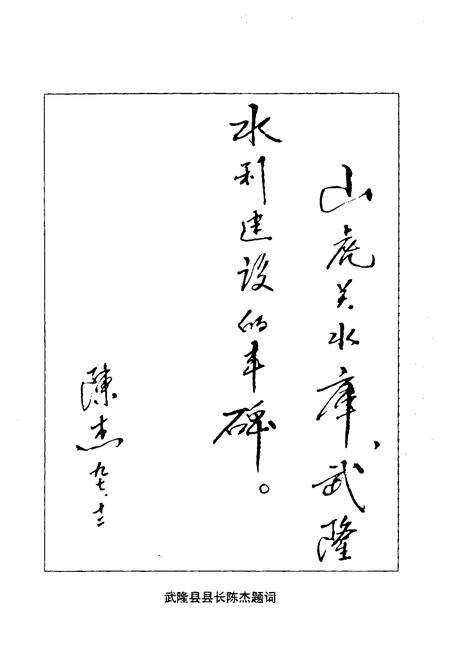 山虎关水库、武隆
水利建设的丰碑。
陈杰
九七.十二
武隆县县长陈杰题词